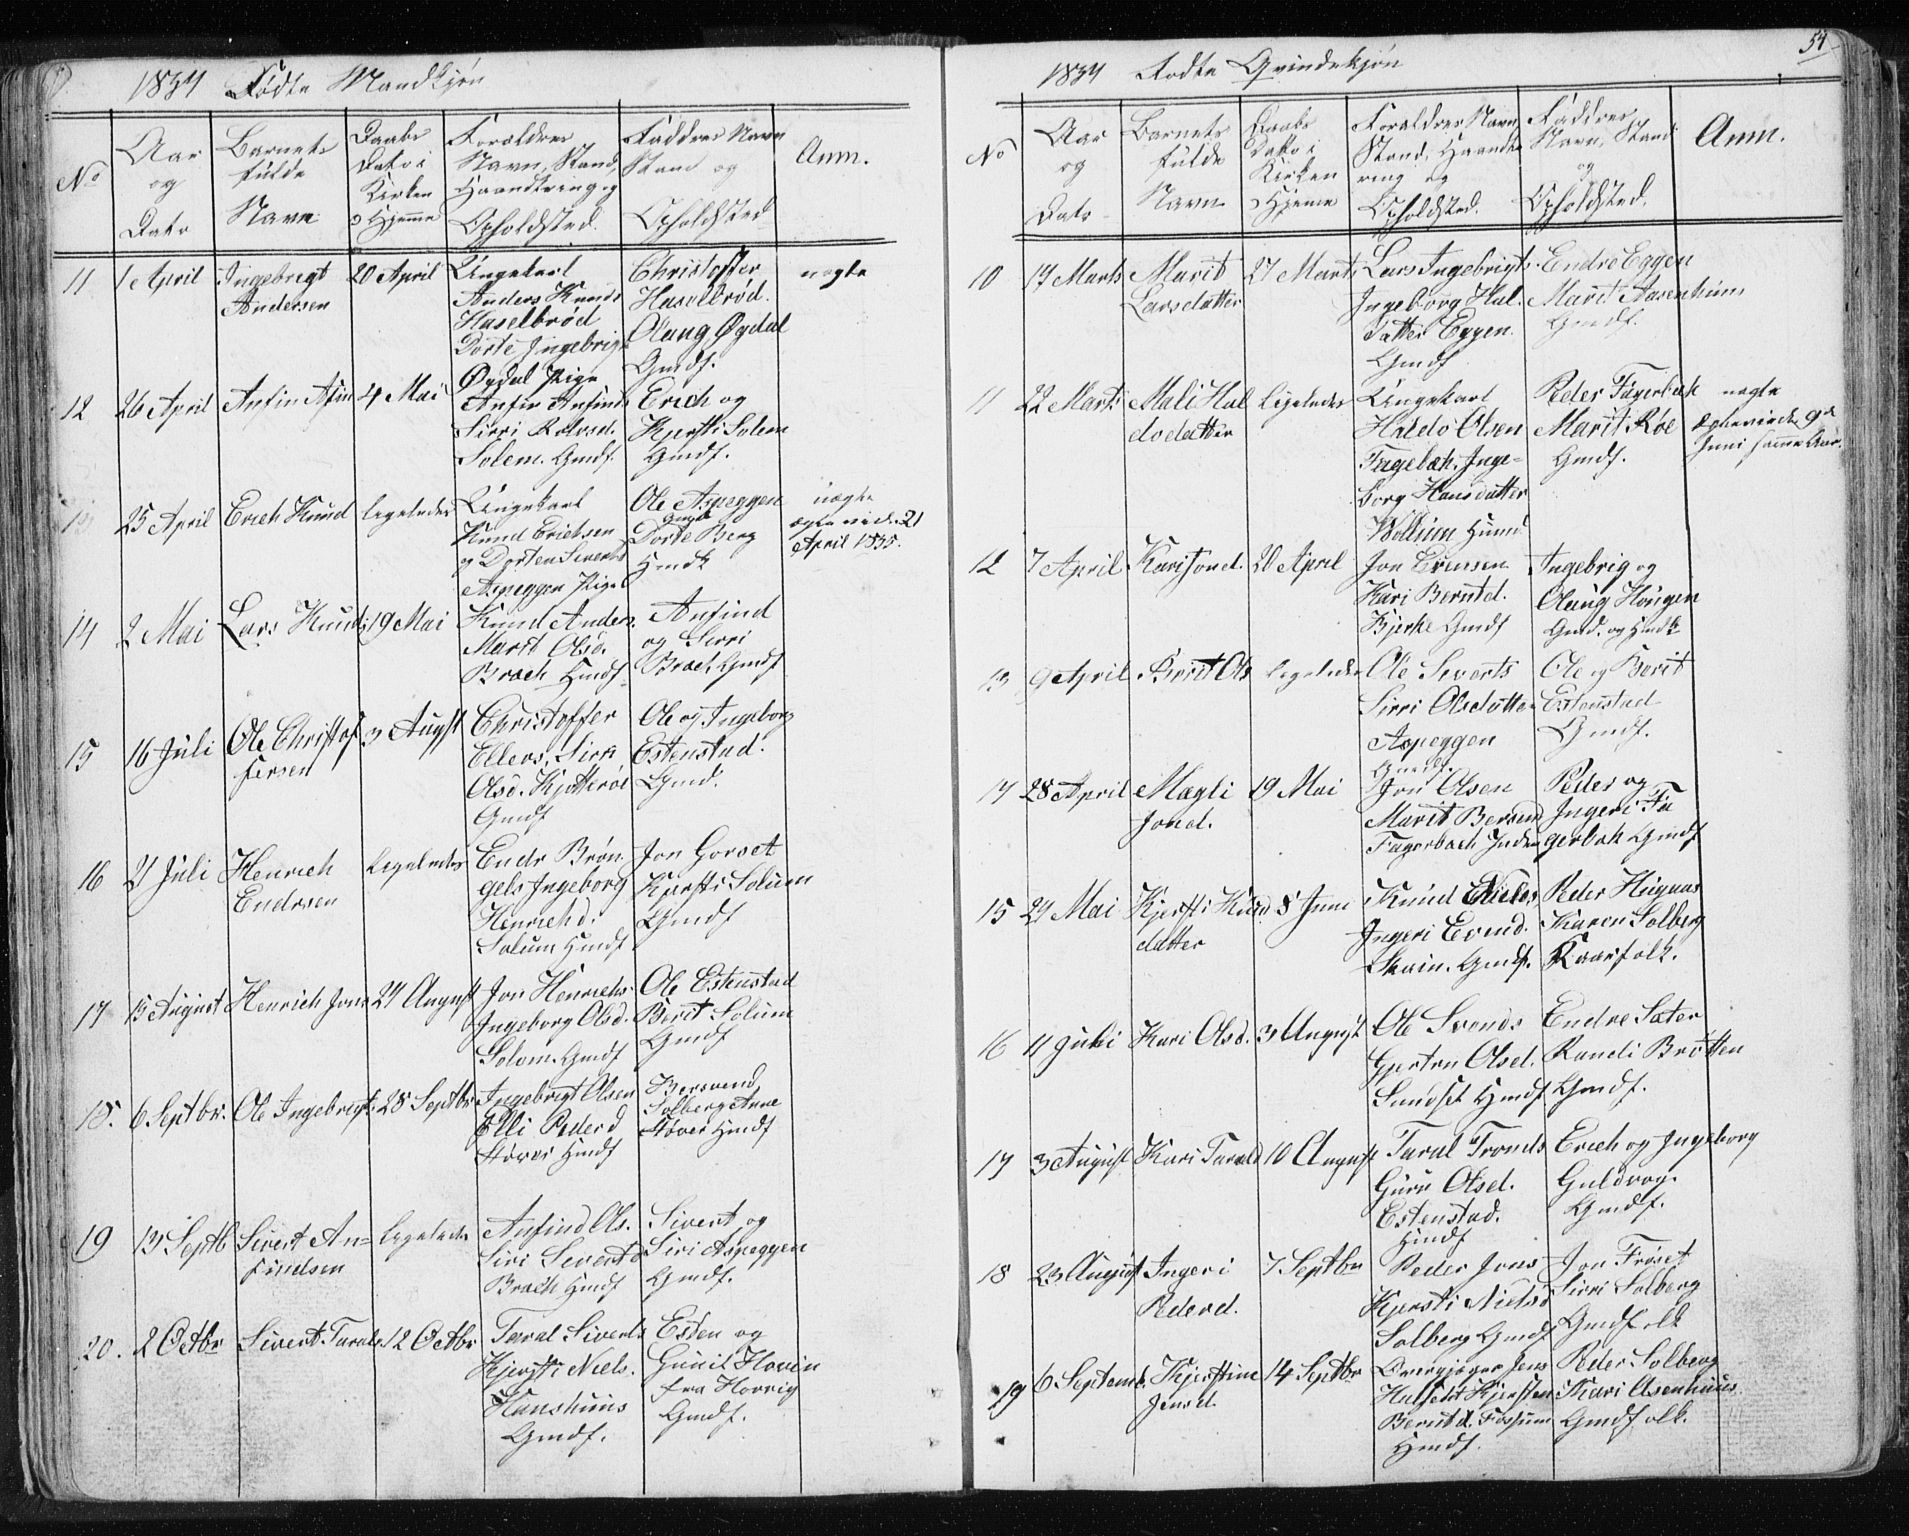 1834 Fødte Mandkjøn
No
Aar
og
Dato
Barnets
fulde
Navn
Daabs
Dato i
Kirken
o Hjemme
Forældres
Navn, Stand,
Haandtering og
Opholdsted.
Faddres Navn
Stand og
Opholdsted
Anm.
11
1 April
Ingebrigt
Andersen
20 April
Ungekarl
Anders Knuds
Haselbrød
Dorte Ingebrigt
Øgdal Pige
Christoffer
Haselbrød.
Olaug Øgdal
Gmdf.
uægte
12
26 April
Anfin Afin
4 Mai
Anfin Anfinds
Sirri Rolvsd.
Solem. Gmdf.
Erich og
Kjersti Solem
Gmdf.
13
25 April
Erich Knud
ligeledes
Ungekarl
Knud Erichsen
og Dorten Siverts
Aspeggen Pige
Ole Aspeggen
Gmd
Dorte Berg
Hmdk
uægte
ægtevied 21
April 1835.
14
2 Mai
Lars Knuds
19 Mai
Knud Anders.
Marit Olsd.
Brach Hmdf.
Anfind
og Sirri
Brach Gmdf
15
16 Juli
Ole Christof
fersen
3 Augst
Christoffer
Ellevs, Sirri
Olsd. Kjøtterøe
Gmdf
Ole og Ingeborg
Estenstad.
Gmdf.
16
21 Juli
Henrich
Endresen
Ligeledes
Endr Brøn
gels Ingeborg
Henrichd.
Solum Hmdf
Jon Gorset
Kjersti Solum
Gmdf
17
15 August
Henrich Jons
24 August
Jon Henrichs.
Ingeborg Olsd.
Solem. Gmdf
Ole Estenstad
Berit Solum
Gmdf
18.
6 Septbr.
Ole Ingebrigts
28 Septbr
Ingebrigt Olsen
Elli Pederd
Støver Hmdf
Bersvend
Solberg Anne
Støver Hmdf
19
13 Septb
Sivert An=
findsen
Ligeledes
Anfind Ols.
Siri Sivertd
Brach Hmdf
Sivert og
Siri Aspeggen
Gmdf.
20.
2 Octbr
Sivert Tarals
12 Octbr
Taral Siverts
Kjersti Niels.
Hanshuus
Gmdf.
Esten og
Gunil Hovin
fra Horrig
Gmdf.
54
1834 Fødte Qvindekjøn
No
Aar
og
Dato
Barnets
fulde
Navn
Daabs
Dato i
Kirken
o Hjemme
Forældres Navn
Stand, Haandte
ring og
Opholdsted.
Faddres
Navn, Stand
og
Opholdsted.
Anm.
10
17 Marts
Marit
Larsdatter
27 Marts
Lars Ingebrigts.
Ingeborg Hal.
datter Eggen.
Gmdf
Endre Eggen
Marit Aasenhuus
Gmdf.
11
22 Marts
Mali Hal
dodatter
ligeledes
Ungekarl
Haldo Olsen
Fagebæk, Inge-
borg Hansdatter
Vollum Huusd
Peder Fagerbæk
Marit Røe
Gmdf.
uægte
ægtevied 9de
Juni samme Aar.
12
7 April
Kari Jond.
20 April
Jon Evensen
Kari Berntd.
Bjerke Gmdf
Ingebrig og
Olaug Hougen
Gmd. og Hmdk
13
9 April
Berit Ols
ligeledes
Ole Siverts
Sirri Olsdatter
Aspeggen
Gmdf.
Ole og Berit
Estenstad
Gmdf.
14
28 April
Magli
Jond.
19 Mai
Jon Olsen
Marit Bersend
Fagerbach Inder
Peder og
Ingeri Fa
gerbak Gmdf
15
29 Mai
Kjersti Knud
datter
8 Juni
Knud Niels
Ingeri Evend.
Skain. Gmdf.
Peder Hugaas
Karen Solberg
Kaarfolk.
16
11 Juli
Kari Olsd.
3 August
Ole Svends
Gjertru Olsd.
Sundset Hmdf
Endre Sæter
Randi Brøtten
Gmdf.
17
3 August
Kari Tarald
10 August
Taral Tronds
Guru Olsd.
Estenstad.
Hmdf
Erich og Ingeborg
Guldvog.
Gmdf.
18
23 August
Ingeri
Pederd.
7 Septbr
Peder Jons
Kjersti Nielsd
Solberg Gmdf
Jon Frøset
Sirri Solberg
Gmdfolk
19
6 Septemb.
Kjerstine
Jensd.
14 Septbr
Overjæger Jens
Hulfeldt Kjersten
Berntd. Fossum
Hmdf.
Peder Solberg
Kari Asenhuus
Gmdfolk.